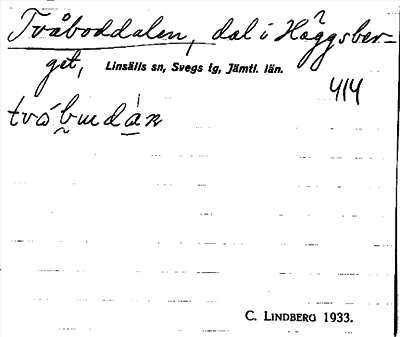 Tvåboddalen, dal i Häggsber-
get, Linsälls sn, Svegs tg, Jämtl. län.
414
C. LINDBERG 1933.